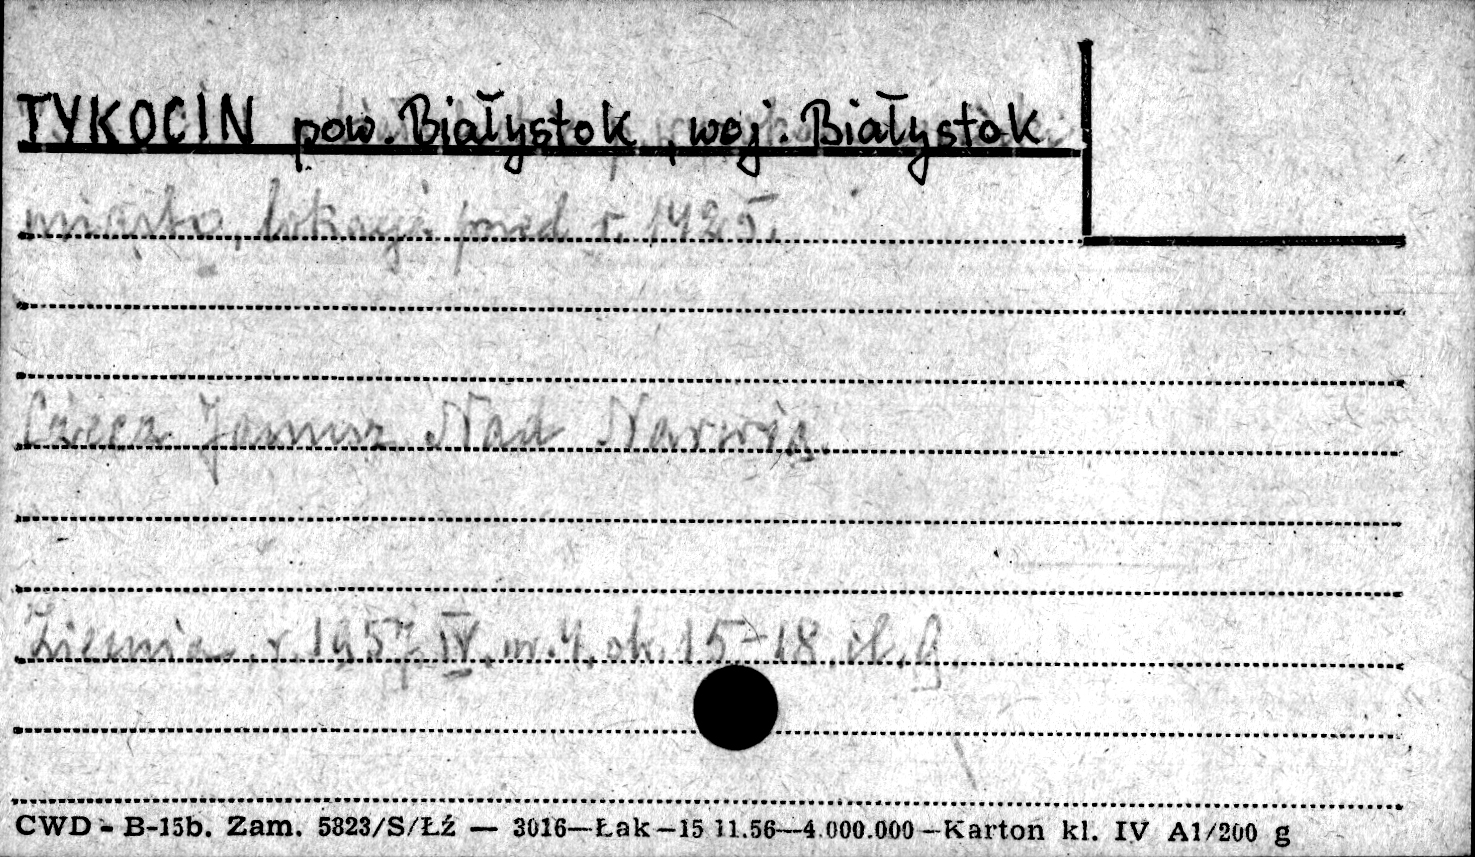 TYKOCIN pow. Białystok, woj. Białystok
miasto, lokacja przed r. 1425.
Janusz Nad Narwią.
Ziemia r. 1957 IV. nr. 4. str. 15-18. il. 9
CWD - B-15b. Zam. 5823/S/Łź — 3016—Łak—15 11.56—4.000.000—Karton kl. IV A1/200 g